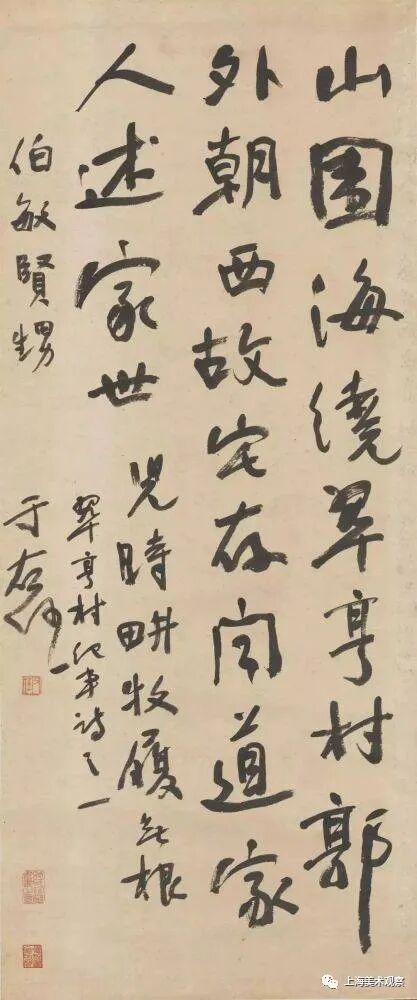 山圍海繞翠亨村郭
外朝西故宅存聞道家
人述家世 兒時畊牧履無根
翠亨村紀事詩之一
伯敏賢甥
于右任
上海美术观察